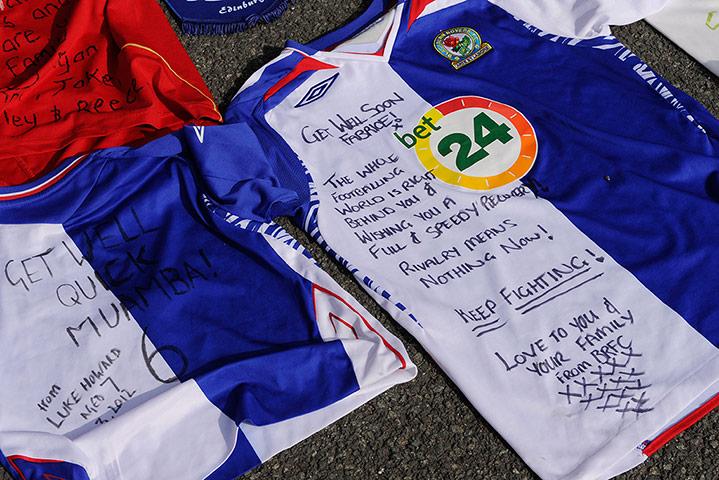 s and
are a
Family
yan
Jake
ley & Reece
GET WELL
QUICK
MUAMBA!
6
from
LUKE HOWARD
AGED 7
2012
GET WELL SOON
FABRICE!
THE WHOLE
FOOTBALLING
WORLD IS RIGHT
BEHIND YOU &
WISHING YOU A
FULL & SPEEDY RECOVERY!!
RIVALRY MEANS
NOTHING NOW!
KEEP FIGHTING!
LOVE TO YOU &
YOUR FAMILY
FROM BRFC
XXXX
bet
24